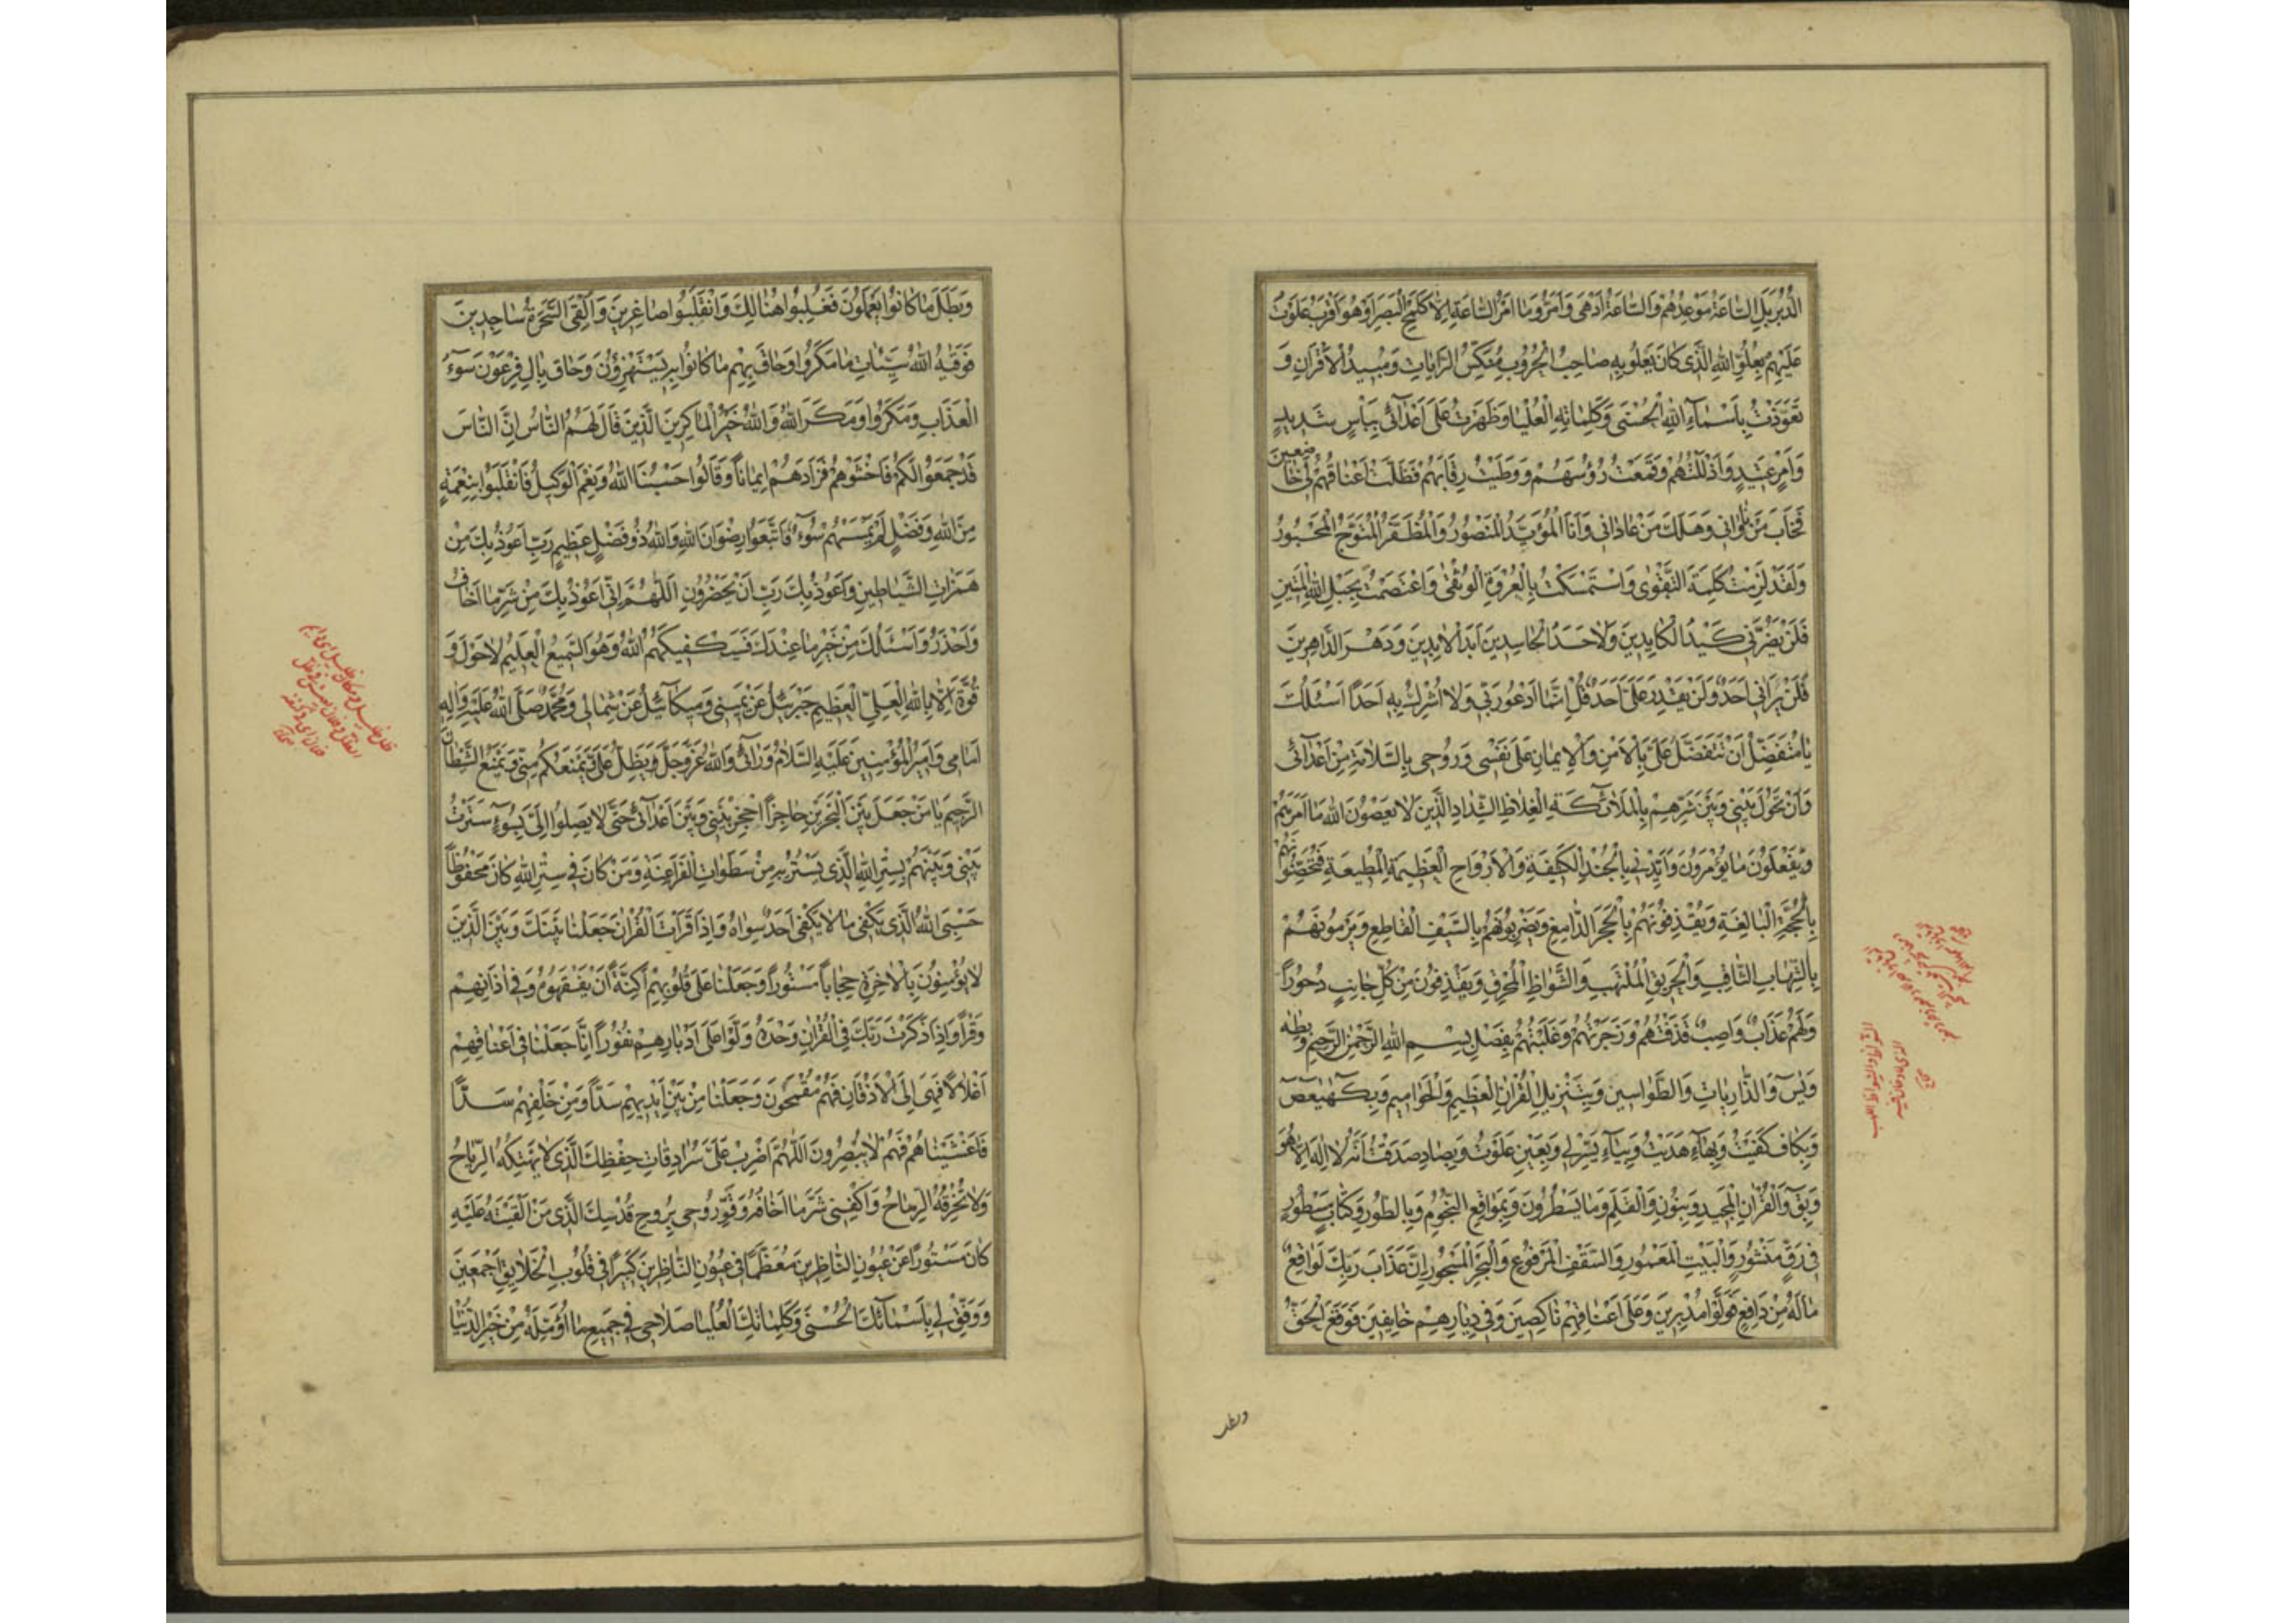 الدُّبُرَ بَلِ السّاعَةُ مَوْعِدُهُمْ وَالسّاعَةُ اَدْهى وَاَمَرُّ وَما اَمْرُ السّاعَةِ اِلّا كَلَمْحِ الْبَصَرِ اَوْ هُوَ اَقْرَبُ عَلَوْتُ
عَلَيْهِمْ بِعُلُوِّ اللّهِ الَّذى كانَ يَعْلُو بِهِ صاحِبُ الْحُرُوبِ مُنَكِّسُ الرّاياتِ وَمُبيدُ الْاَقْرانِ وَ
تَعَوَّذْتُ بِاَسْماءِ اللّهِ الْحُسْنى وَكَلِماتِهِ الْعُلْيا وَظَهَرْتُ عَلى اَعْدائى بِبَأْسٍ شَديدٍ
وَاَمْرٍ عَتيدٍ وَاَذْلَلْتُهُمْ وَقَمَعْتُ رُؤُسَهُمْ وَوَطَيْتُ رِقابَهُمْ فَظَلَّتْ اَعْناقُهُمْ لى خاضِعينَ
فَخابَ مَنْ ناوانى وَهَلَكَ مَنْ عادانى وَاَنَا الْمُؤَيَّدُ الْمَنْصُورُ وَالْمُظَفَّرُ الْمُتَوَّجُ الْمَحْبُورُ
وَلَقَدْ لَزِمْتُ كَلِمَةَ التَّقْوى وَاسْتَمْسَكْتُ بِالْعُرْوَةِ الْوُثْقى وَاعْتَصَمْتُ بِحَبْلِ اللّهِ الْمَتينِ
فَلَنْ يَضُرَّنى كَيْدُ الْكايِدينَ وَلا حَسَدُ الْحاسِدينَ اَبَدَ الْابِدينَ وَدَهْرَ الدّاهِرينَ
فَلَنْ يَرانى اَحَدٌ وَلَنْ يَقْدِرَ عَلَىَّ اَحَدٌ قُلْ اِنَّما اَدْعُو رَبّى وَلا اُشْرِكُ بِهِ اَحَداً اَسْئَلُكَ
يا مُتَفَضِّلُ اَنْ تَتَفَضَّلَ عَلَىَّ بِالْاَمْنِ وَالْايمانِ عَلى نَفْسى وَرُوحى بِالسَّلامَةِ مِنْ اَعْدائى
وَاَنْ تَحُولَ بَيْنى وَبَيْنَ شَرِّهِمْ بِالْمَلائِكَةِ الْغِلاظِ الشِّدادِ الَّذينَ لا يَعْصُونَ اللّهَ ما اَمَرَهُمْ
وَيَفْعَلُونَ ما يُؤْمَرُونَ وَاَيِّدْنى بِالْجُنْدِ الْكَثيفَةِ وَالْاَرْواحِ الْعَظيمَةِ الْمُطيعَةِ
بِالْحُجَّةِ الْبالِغَةِ وَيَقْذِفُونَهُمْ بِالْحَجَرِ الدّامِغِ وَيَضْرِبُونَهُمْ بِالسَّيْفِ الْقاطِعِ وَيَرْمُونَهُمْ
بِالشِّهابِ الثّاقِبِ وَالْحَريقِ الْمُلْتَهِبِ وَالشُّواظِ الْمُحْرِقِ وَيُقْذَفُونَ مِنْ كُلِّ جانِبٍ دُحُوراً
وَلَهُمْ عَذابٌ واصِبٌ قَذَفْتُهُمْ وَزَجَرْتُهُمْ وَغَلَبْتُهُمْ بِفَضْلِ بِسْمِ اللّهِ الرَّحْمنِ الرَّحيمِ وَطه
وَيس وَالذّارِياتِ وَالطَّواسينِ وَبِتَنْزيلِ الْقُرْانِ الْعَظيمِ وَالْحَواميمِ وَبِكهيعص
وَبِكافٍ كُفيتُ وَبِهاءٍ هُديتُ وَبِياءٍ يُسِّرَ لى وَبِعَيْنٍ عَلَوْتُ وَبِصادٍ صَدَقْتُ اَنَّهُ لا اِلهَ اِلّا هُوَ
وَبِق وَالْقُرْانِ الْمَجيدِ وَبِنُونِ وَالْقَلَمِ وَما يَسْطُرُونَ وَبِمَواقِعِ النُّجُومِ وَبِالطُّورِ وَكِتابٍ مَسْطُورٍ
فى رَقٍّ مَنْشُورٍ وَالْبَيْتِ الْمَعْمُورِ وَالسَّقْفِ الْمَرْفُوعِ وَالْبَحْرِ الْمَسْجُورِ اِنَّ عَذابَ رَبِّكَ لَواقِعٌ
ما لَهُ مِنْ دافِعٍ فَوَلَّوْا مُدْبِرينَ وَعَلى اَعْقابِهِمْ ناكِصينَ وَفى دِيارِهِمْ خايِفينَ فَوَقَعَ الْحَقُّ
وبطل
وَبَطَلَ ما كانُوا يَعْمَلُونَ فَغُلِبُوا هُنالِكَ وَانْقَلَبُوا صاغِرينَ وَاُلْقِىَ السَّحَرَةُ ساجِدينَ
فَوَقيهُ اللّهُ سَيِّئاتِ ما مَكَرُوا وَحاقَ بِهِمْ ما كانُوا بِهِ يَسْتَهْزِؤُنَ وَحاقَ بِالِ فِرْعَوْنَ سُوءُ
الْعَذابِ وَمَكَرُوا وَمَكَرَ اللّهُ وَاللّهُ خَيْرُ الْماكِرينَ الَّذينَ قالَ لَهُمُ النّاسُ اِنَّ النّاسَ
قَدْ جَمَعُوا لَكُمْ فَاخْشَوْهُمْ فَزادَهُمْ ايماناً وَقالُوا حَسْبُنَا اللّهُ وَنِعْمَ الْوَكيلُ فَانْقَلَبُوا بِنِعْمَةٍ
مِنَ اللّهِ وَفَضْلٍ لَمْ يَمْسَسْهُمْ سُوءٌ فَاتَّبَعُوا رِضْوانَ اللّهِ وَاللّهُ ذُو فَضْلٍ عَظيمٍ رَبِّ اَعُوذُ بِكَ مِنْ
هَمَزاتِ الشَّياطينِ وَاَعُوذُ بِكَ رَبِّ اَنْ يَحْضُرُونِ اَللّهُمَّ اِنّى اَعُوذُ بِكَ مِنْ شَرِّ ما اَخافُ
وَاَحْذَرُ وَاَسْئَلُكَ مِنْ خَيْرِ ما عِنْدَكَ فَسَيَكْفيكَهُمُ اللّهُ وَهُوَ السَّميعُ الْعَليمُ لا حَوْلَ وَ
قُوَّةَ اِلّا بِاللّهِ الْعَلِىِّ الْعَظيمِ جَبْرَئيلُ عَنْ يَمينى وَميكآئيلُ عَنْ شِمالى وَمُحَمَّدٌ صَلَّى اللّهُ عَلَيْهِ وَالِهِ
اَمامى وَاَميرُ الْمُؤْمِنينَ عَلَيْهِ السَّلامُ وَرائى وَاللّهُ عَزَّ وَجَلَّ وَيُظِلُّ عَلَىَّ يَمْنَعُكُمْ مِنّى وَيَمْنَعُ الشَّيْطانَ
الرَّجيمَ يا مَنْ جَعَلَ بَيْنَ الْبَحْرَيْنِ حاجِزاً اُحْجُزْ بَيْنى وَبَيْنَ اَعْدائى حَتّى لا يَصِلُوا اِلَىَّ بِسُوءٍ سَتَرْتُ
بَيْنى وَبَيْنَهُمْ بِسِتْرِ اللّهِ الَّذى يُسْتَرُ بِهِ مِنْ سَطَواتِ الْفَراعِنَةِ وَمَنْ كانَ فى سِتْرِ اللّهِ كانَ مَحْفُوظاً
حَسْبِىَ اللّهُ الَّذى يَكْفى ما لا يَكْفى اَحَدٌ سِواهُ وَاِذا قَرَأْتَ الْقُرْانَ جَعَلْنا بَيْنَكَ وَبَيْنَ الَّذينَ
لا يُؤْمِنُونَ بِالْاخِرَةِ حِجاباً مَسْتُوراً وَجَعَلْنا عَلى قُلُوبِهِمْ اَكِنَّةً اَنْ يَفْقَهُوهُ وَفى اذانِهِمْ
وَقْراً وَاِذا ذَكَرْتَ رَبَّكَ فِى الْقُرْانِ وَحْدَهُ وَلَّوْا عَلى اَدْبارِهِمْ نُفُوراً اِنّا جَعَلْنا فى اَعْناقِهِمْ
اَغْلالاً فَهِىَ اِلَى الْاَذْقانِ فَهُمْ مُقْمَحُونَ وَجَعَلْنا مِنْ بَيْنِ اَيْديهِمْ سَدّاً وَمِنْ خَلْفِهِمْ سَدّاً
فَاَغْشَيْناهُمْ فَهُمْ لا يُبْصِرُونَ اَللّهُمَّ اضْرِبْ عَلَىَّ سُرادِقاتِ حِفْظِكَ الَّذى لا يَهْتِكُهُ الرِّياحُ
وَلا تَخْرِقُهُ الرِّماحُ وَاكْفِنى شَرَّ ما اَخافُهُ وَقَوِّ رُوحى بِرُوحِ قُدْسِكَ الَّذى مَنْ اَلْقَيْتَهُ عَلَيْهِ
كانَ مَسْتُوراً عَنْ عُيُونِ النّاظِرينَ مُعَظَّماً فى عُيُونِ النّاظِرينَ كَبيراً فى قُلُوبِ الْخَلايِقِ اَجْمَعينَ
وَوَفِّقْ لى بِاَسْمائِكَ الْحُسْنى وَكَلِماتِكَ الْعُلْيا صَلاحى فى جَميعِ ما اُؤَمِّلُهُ مِنْ خَيْرِ الدُّنْيا